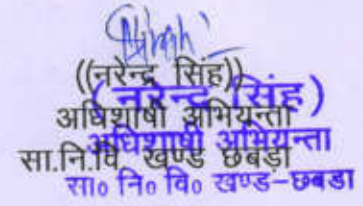 ((नरेन्द्र सिंह))
(नरेन्द्र सिंह)
अधिशाषी अभियन्ता
अधिशाषी अभियन्ता
सा.नि.वि खण्ड छबड़ा
सा० नि० वि० खण्ड-छबडा